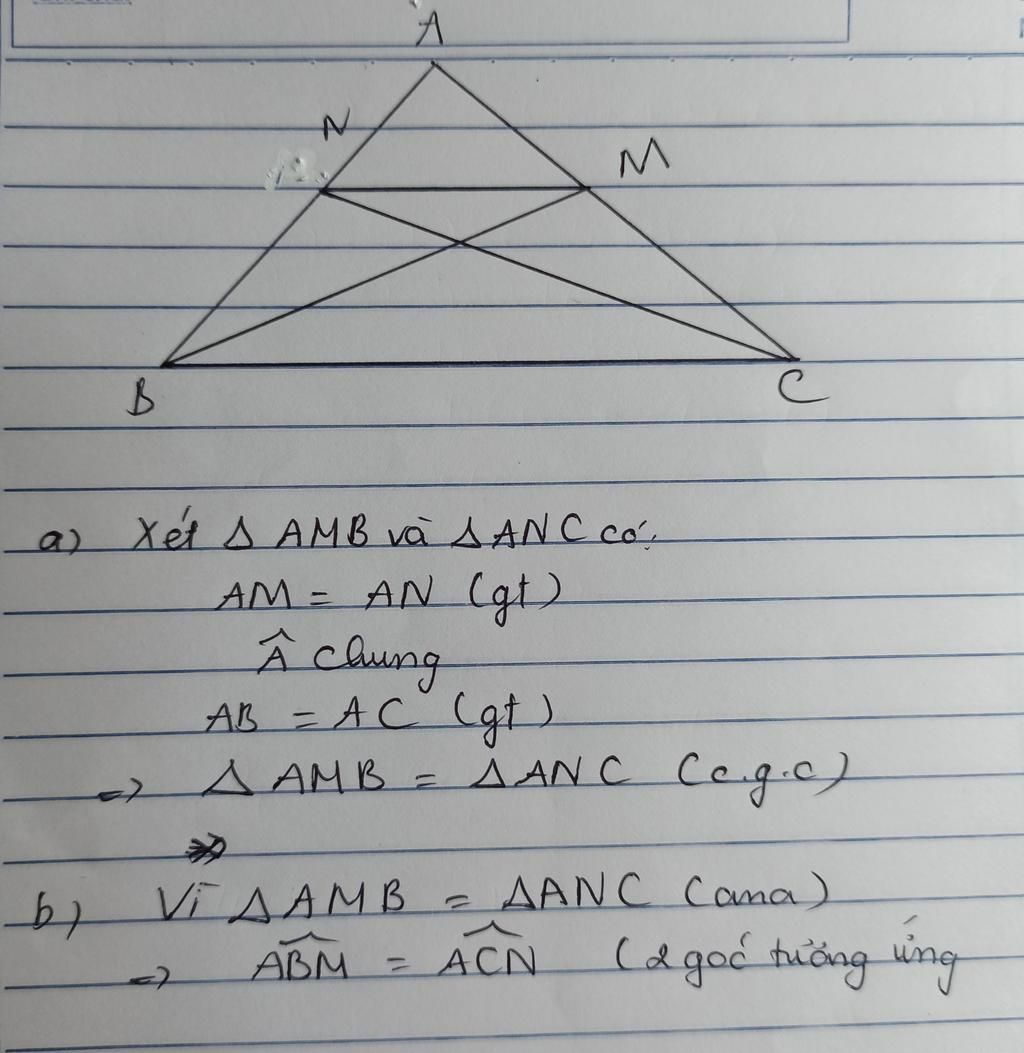 A
N
M
B
C
a) Xét Δ AMB và Δ ANC có:
AM = AN (gt)
Â chung
AB = AC (gt)
=> Δ AMB = Δ ANC (c.g.c)
b) Vì Δ AMB = Δ ANC (cma)
=> ABM̂ = ACN̂ (2 góc tương ứng